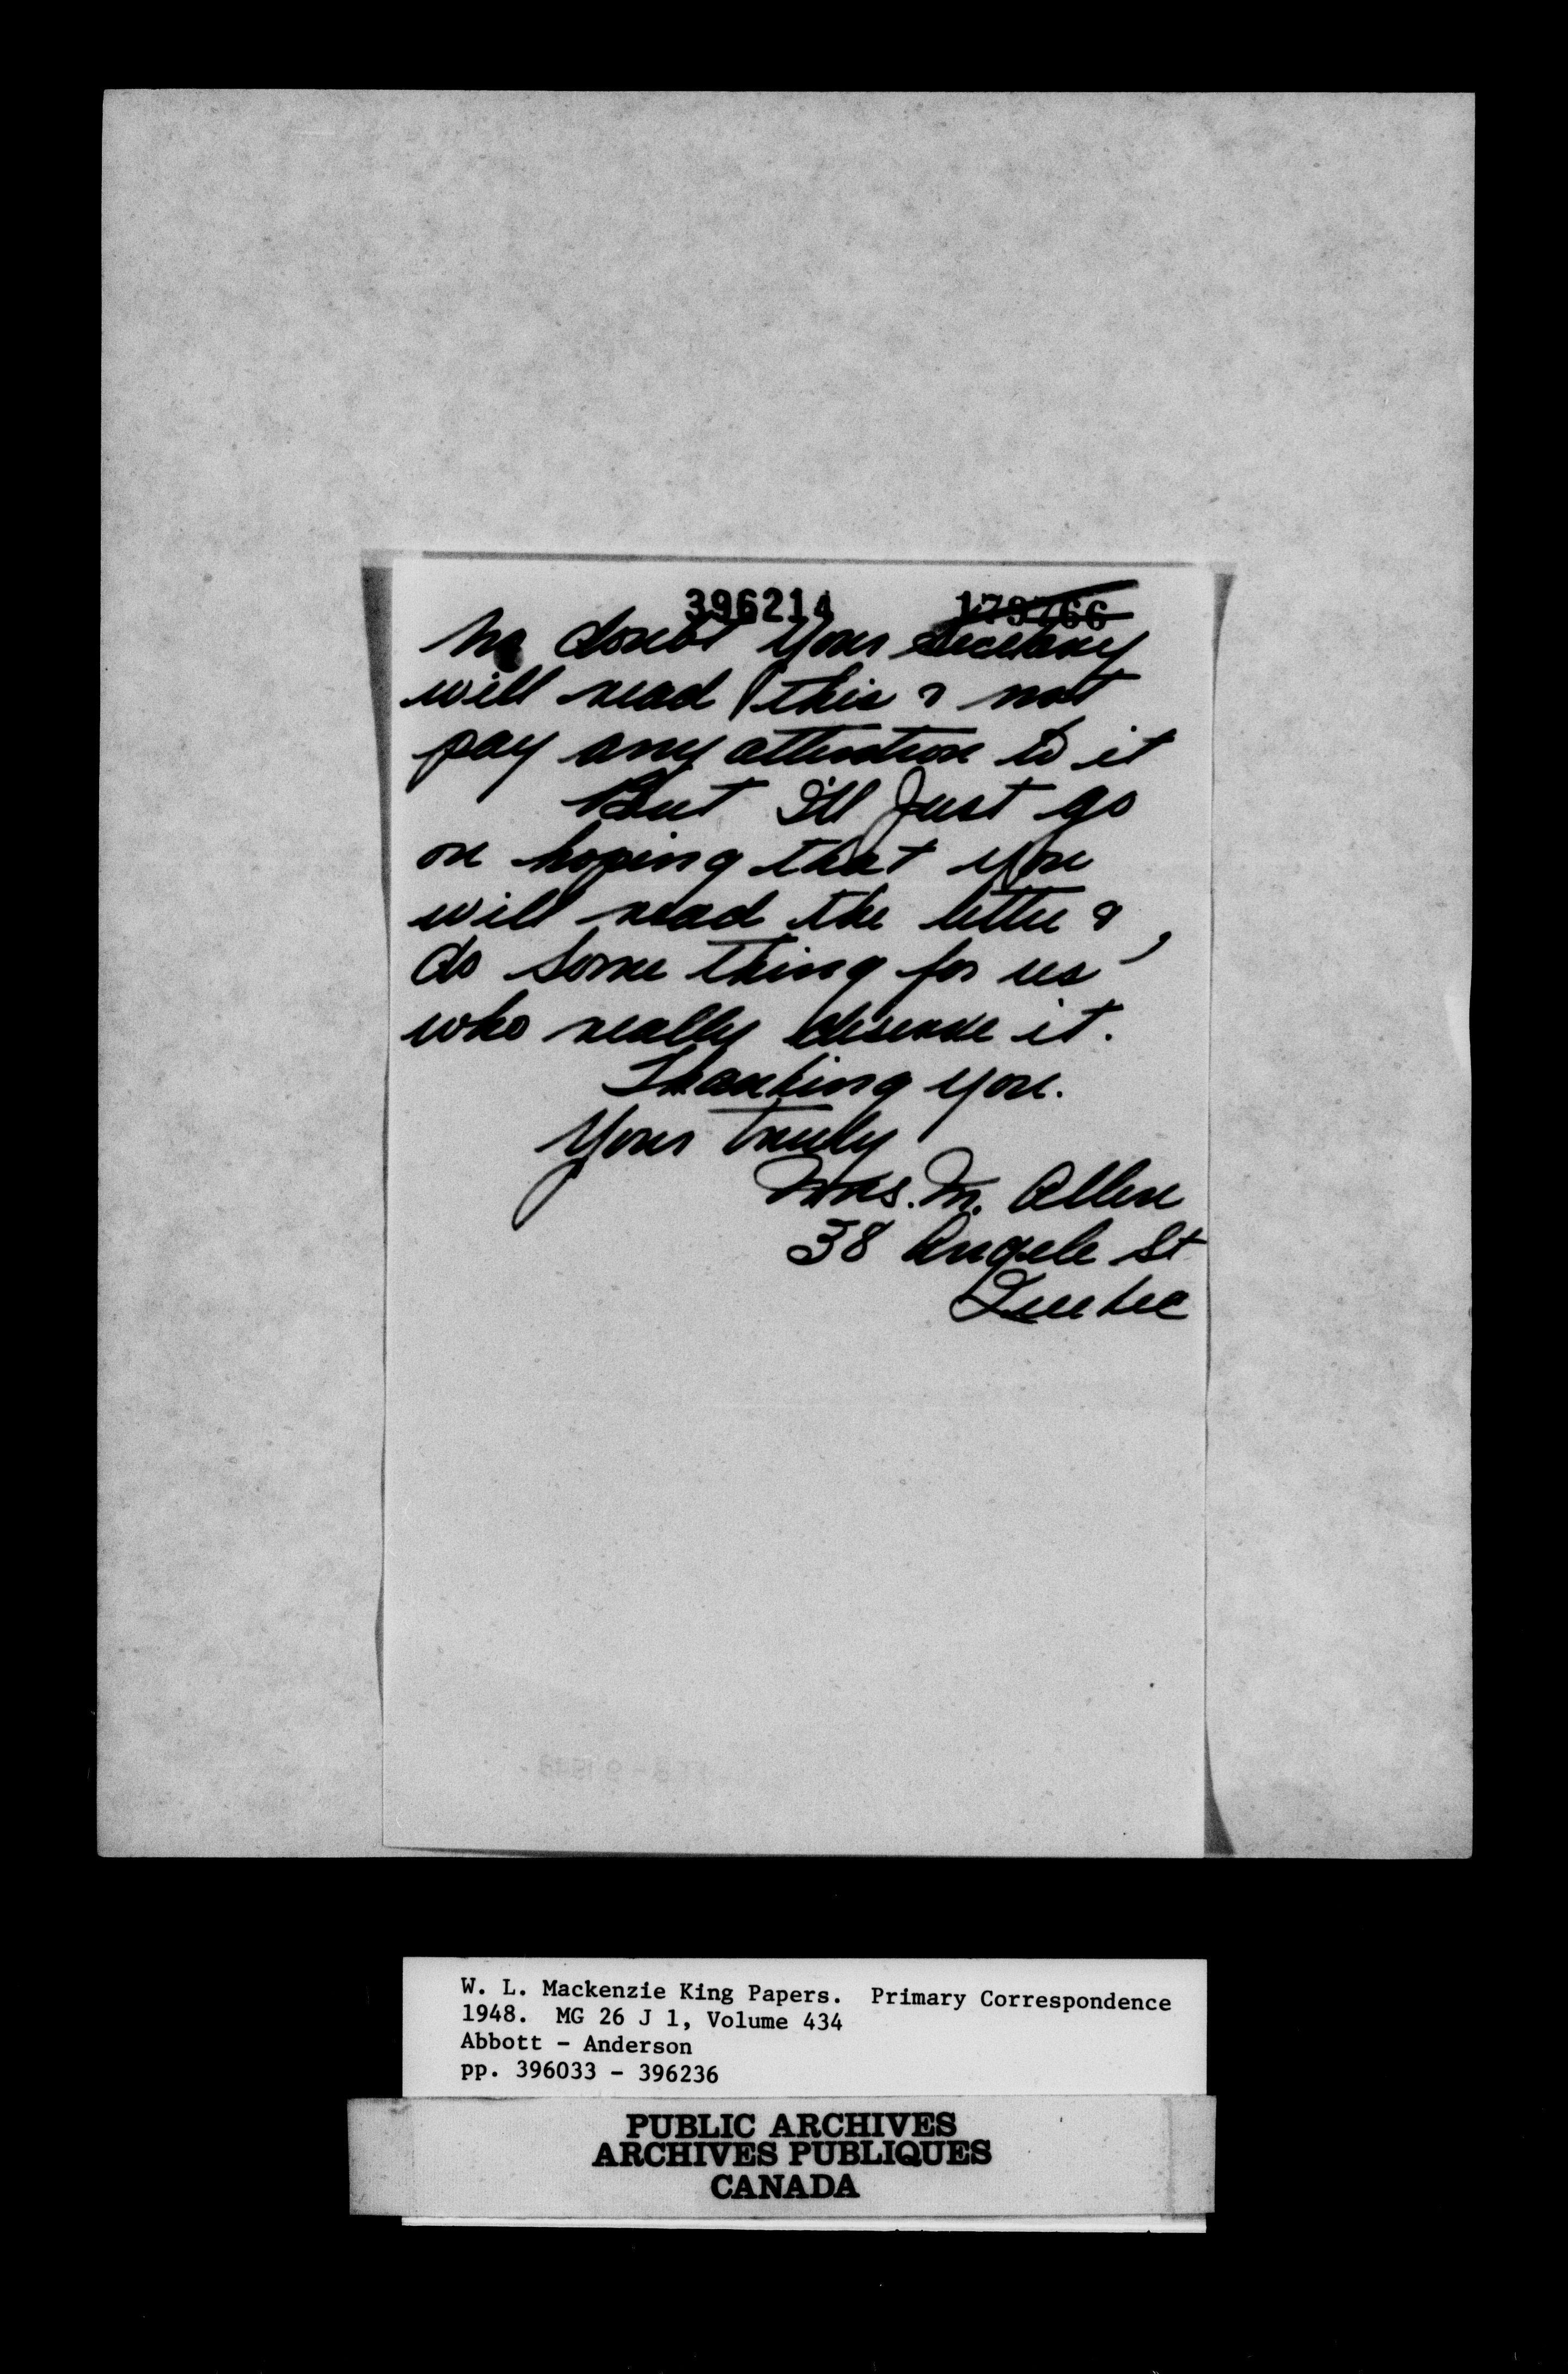 396214 179766
No doubt your secretary
will read this & not
pay any attention to it
But I'll Just go
on hoping that you
will read the letter &
do some thing for us,
who really deserve it.
Thanking you.
Your truly
Mrs. M. Allen
38 Angele St
Quebec
W. L. Mackenzie King Papers. Primary Correspondence
1948. MG 26 J 1, Volume 434
Abbott - Anderson
pp. 396033 - 396236
PUBLIC ARCHIVES
ARCHIVES PUBLIQUES
CANADA